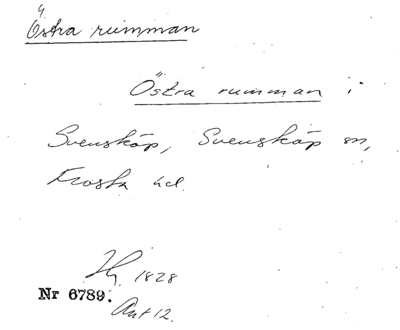 Östra rumman
Östra rumman i
Svensköp, Svensköp sn,
Frosta hd.
Hy. 1828
Nr 6789.
Akt 12.